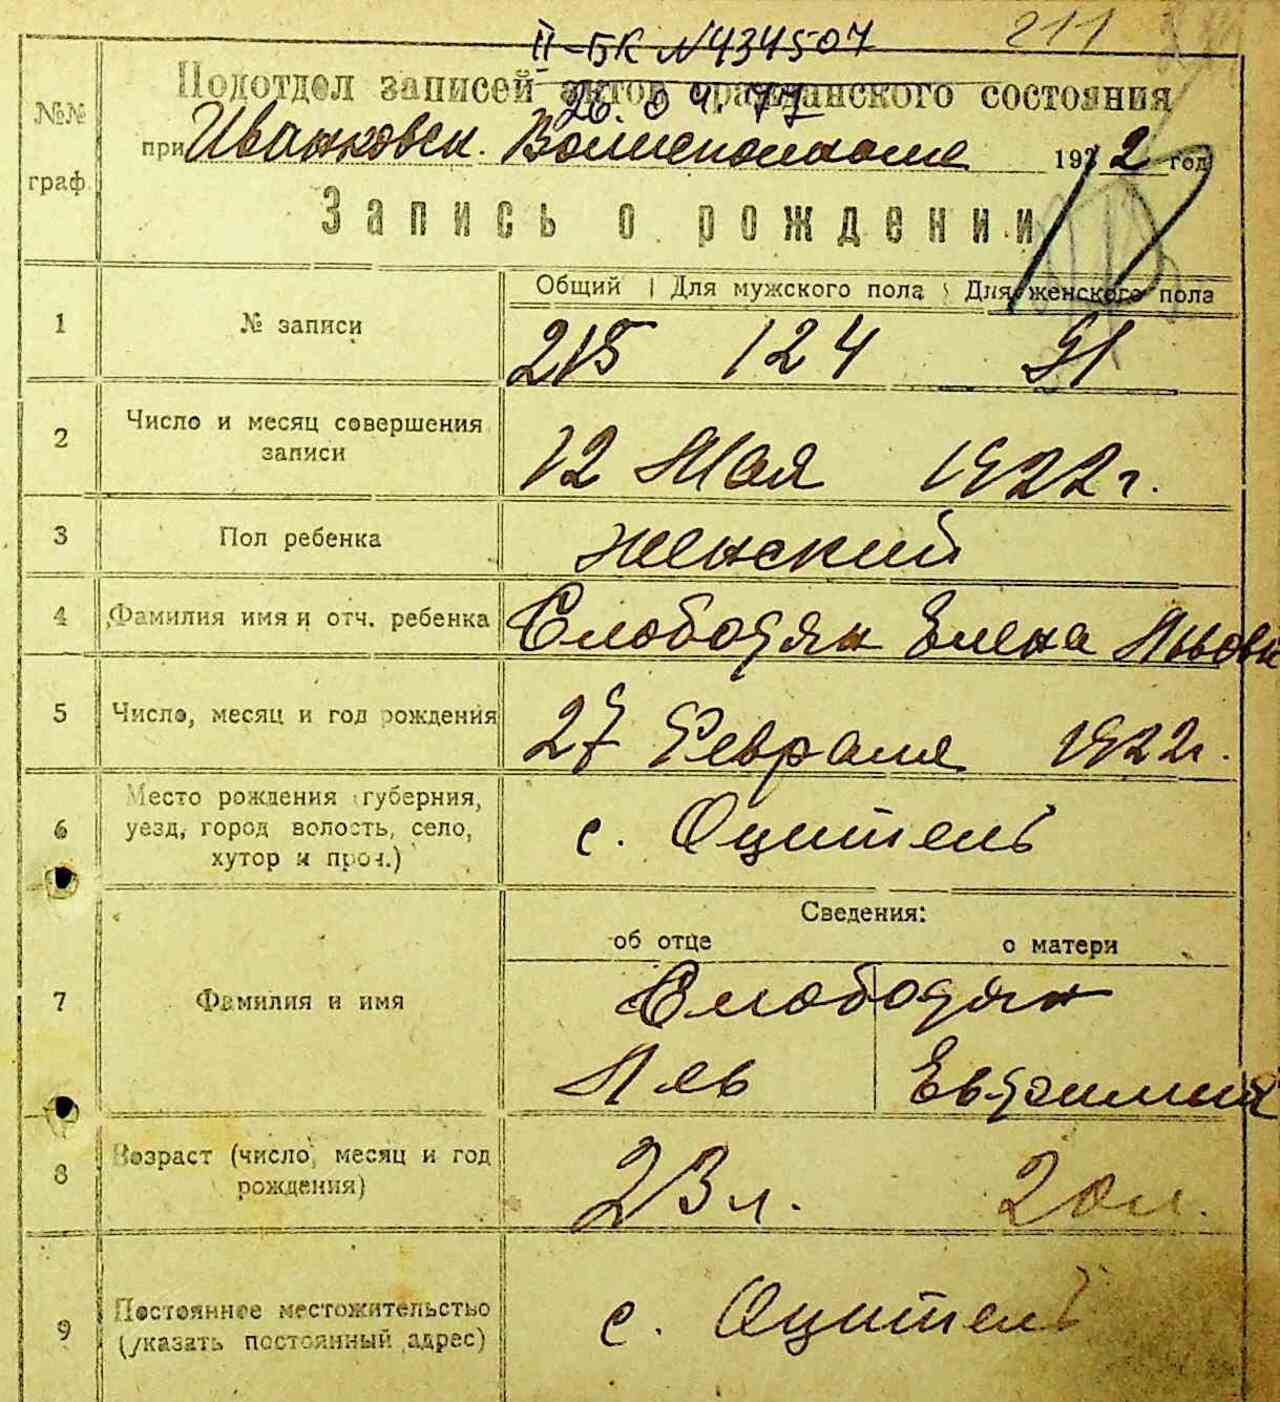 II-БК №434507
211
26.04.77
Подотдел записей актов гражданского состояния
№№ граф
при Иванковск. Волисполкоме 1922 год
Запись о рождении
Общий | Для мужского пола | Для женского пола
1 № записи 215 124 91
2 Число и месяц совершения записи 12 Мая 1922 г.
3 Пол ребенка женский
4 Фамилия имя и отч. ребенка Слободян Елена Львовн
5 Число, месяц и год рождения 27 Февраля 1922 г.
6 Место рождения (губерния, уезд, город волость, село, хутор и проч.) с. Оцитель
Сведения:
об отце о матери
7 Фамилия и имя Слободян
Лев Евфимия
8 Возраст (число, месяц и год рождения) 23 л. 20 л.
9 Постоянное местожительство (указать постоянный адрес) с. Оцитель